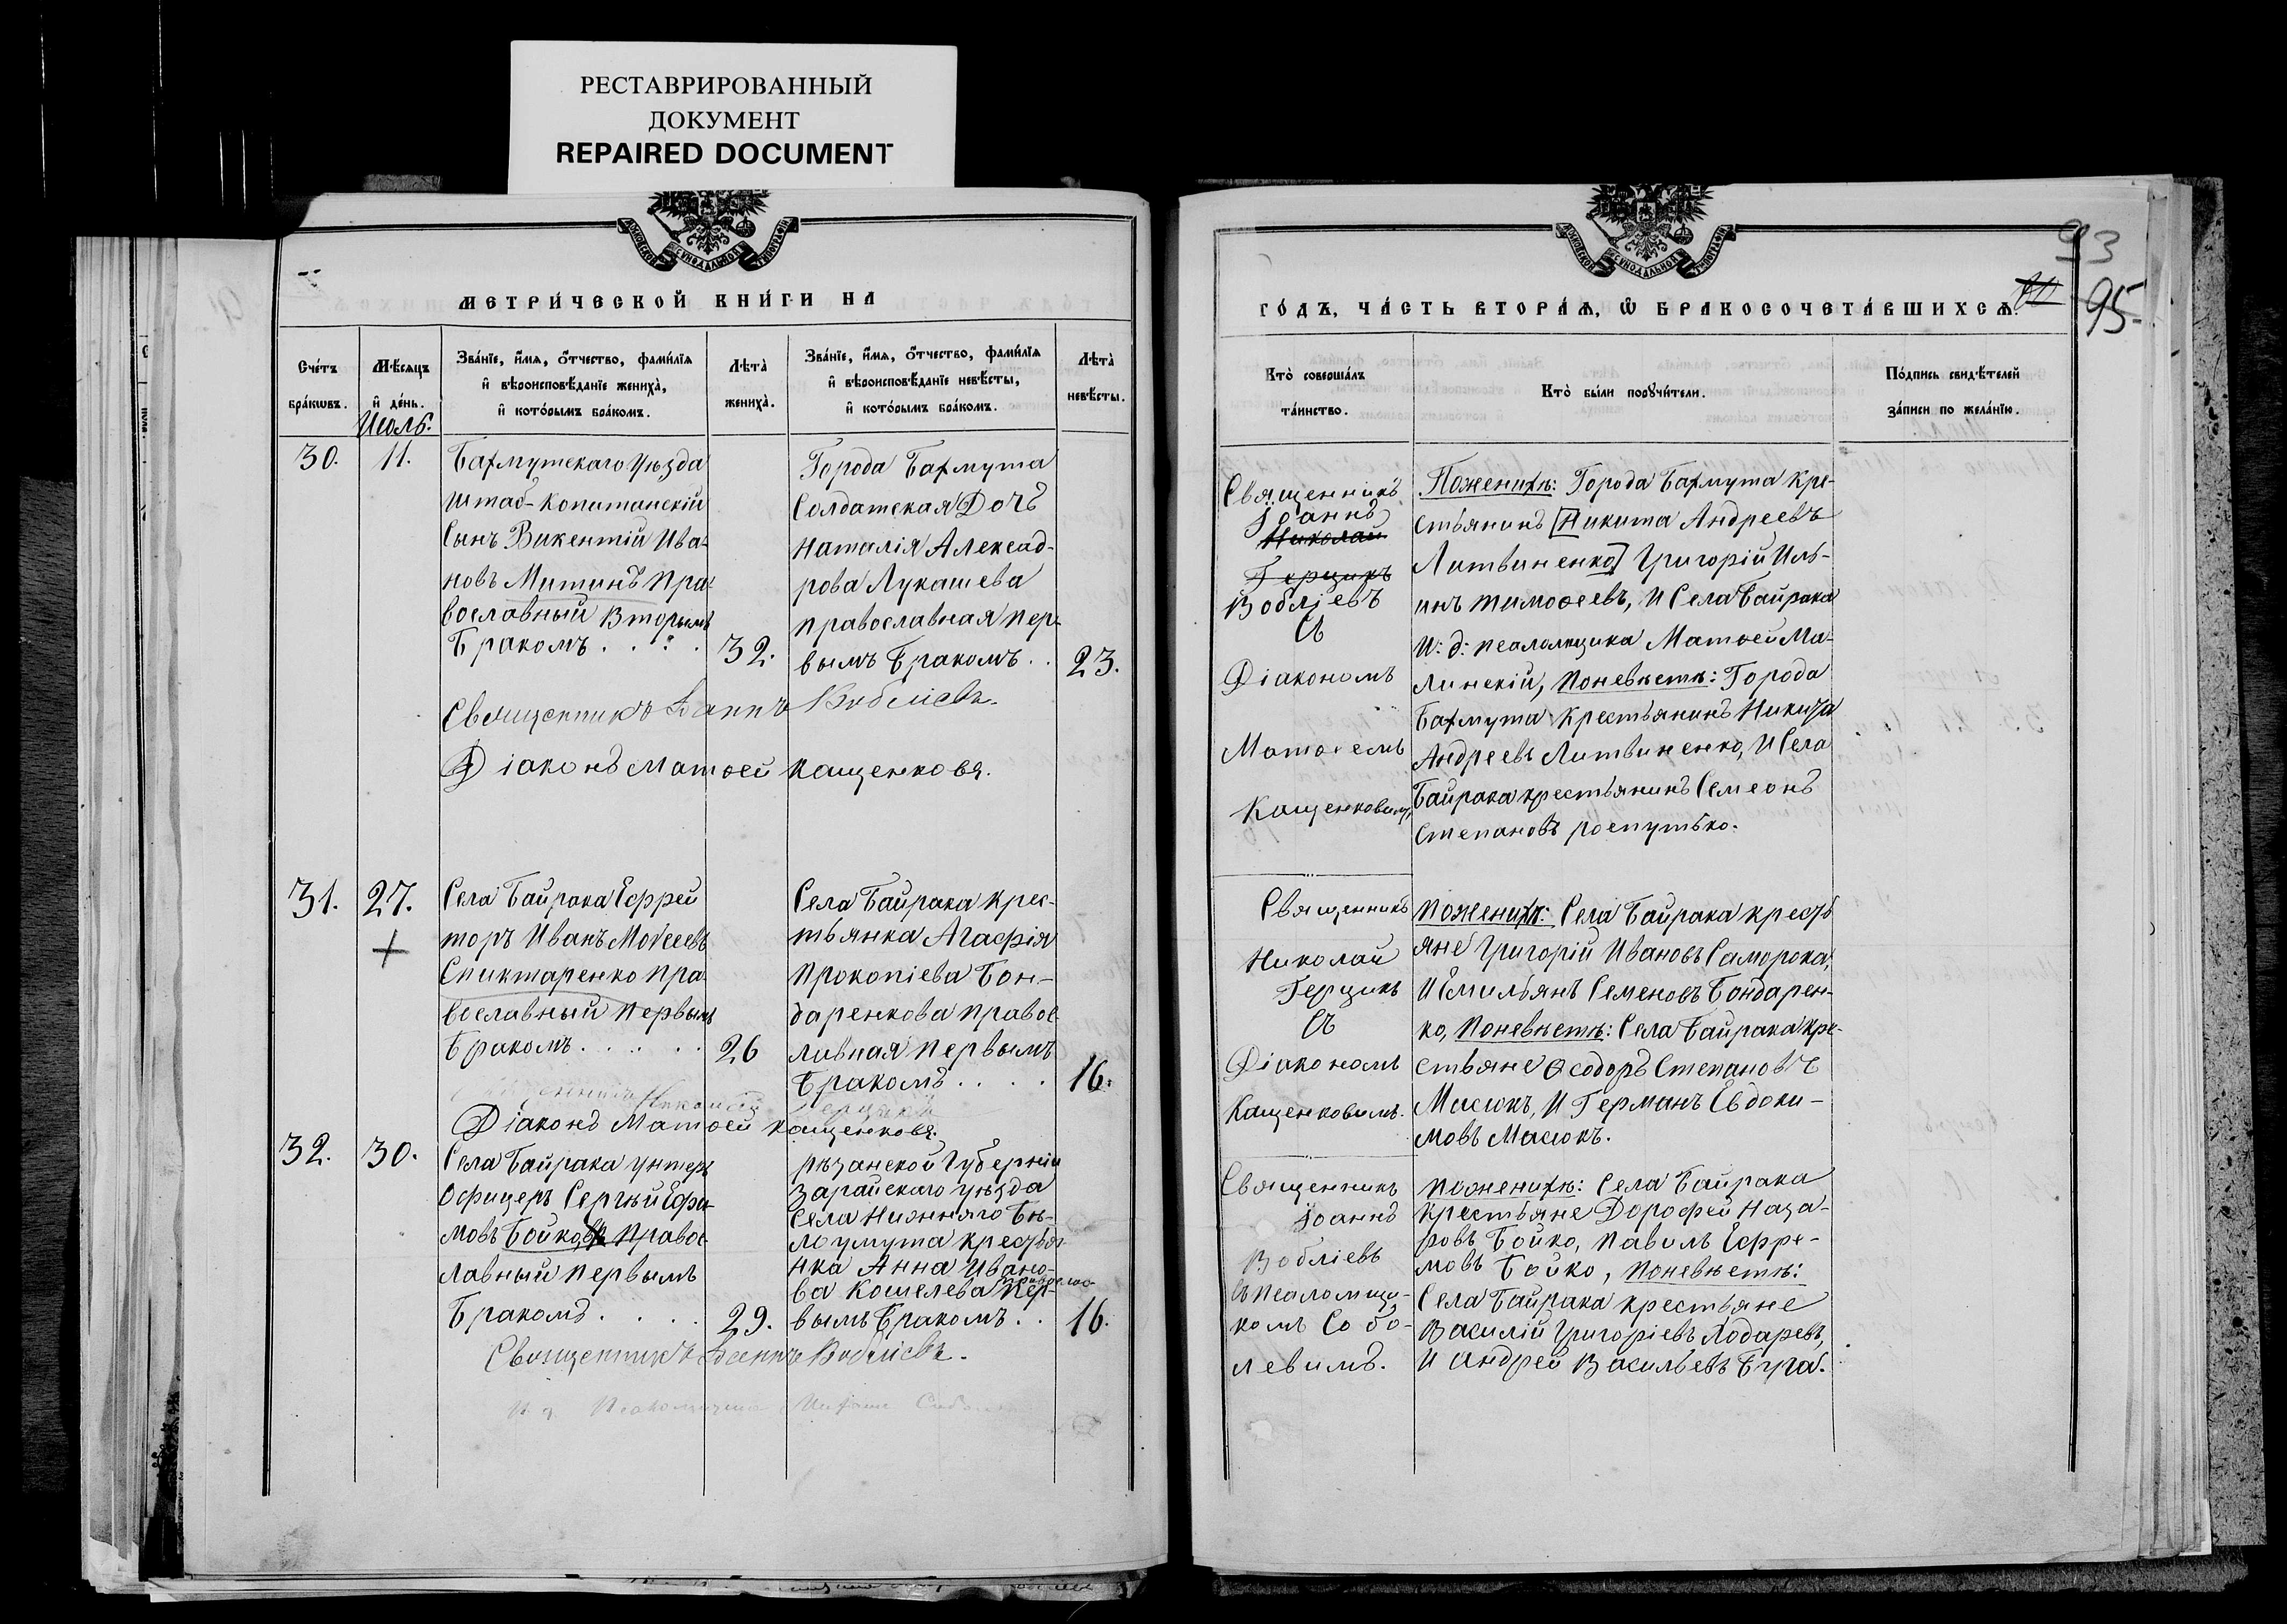 РЕСТАВРИРОВАННЫЙ
ДОКУМЕНТ
REPAIRED DOCUMENT
МОСКОВСКОЙ СѴНОДАЛЬНОЙ ТИПОГРАФІИ
МЕТРИ́ЧЕСКОЙ КНИ́ГИ НА
Сче́тъ
бра́кѡвъ.
Мѣ́сяцъ
и҆ де́нь.
Июль.
Зва́нїе, и҆́мѧ, ѻ҆́тчество, фами́лїѧ
и҆ вѣроисповѣ́данїе жениха̀,
и҆ кото́рымъ бра́комъ.
Лѣта̀
жениха̀.
Зва́нїе, и҆́мѧ, ѻ҆́тчество, фами́лїѧ
и҆ вѣроисповѣ́данїе невѣ́сты,
и҆ кото́рымъ бра́комъ.
Лѣта̀
невѣ́сты.
30.
11.
Бахмутскаго уѣзда
штаб-Капитанскій
Сынъ Викентій Ива-
новъ Митинъ пра-
вославный Вторымъ
Бракомъ . . . .
32.
Города Бахмута
Солдатская Дочь
Наталія Алексад-
рова Лукашева
православная пер-
вымъ Бракомъ . .
23.
Священникъ Іоаннъ Вобліевъ.
Діаконъ Матѳей Кащенковъ.
31.
27.
Села Байрака Ефрей
торъ Иванъ Моѵсеевъ
Сниктаренко пра-
вославный первымъ
Бракомъ . . . . .
26
Села Байрака крес-
тьянка Агафія
Прокопіева Бон-
даренкова правос
лавная первымъ
Бракомъ . . . .
16.
Діаконъ Матѳей Кащенковъ.
32.
30.
Села Байрака унтеръ
Офицеръ Сергѣй Ефи-
мовъ Бойковъ правос
лавный первымъ
Бракомъ . . . .
29.
рѣзанской Губерніи
Зарайскаго уѣзда
Села Нижняго Бѣ-
лоумута крестья-
нка Анна Ивано-
ва Кошелева пер-
вымъ Бракомъ . .
16.
Священникъ Іоаннъ Вобліевъ.
МОСКОВСКОЙ СѴНОДАЛЬНОЙ ТИПОГРАФІИ
93
95
ГО́ДЪ, ЧА́СТЬ ВТОРА́Ѧ, Ѡ҆ БРАКОСОЧЕТА́ВШИХСѦ.
Кто̀ соверша́лъ
та́инство.
Кто̀ бы́ли порꙋчи́тели.
По́дпись свидѣ́телей
за́писи по жела́нїю.
Священникъ
Іоаннъ
Николай
Герцикъ
Вобліевъ
Съ
Діакономъ
Матѳеемъ
Кащенковымъ
Поженихѣ: Города Бахмута кре-
стьянинъ [Никита Андреевъ
Литвиненко] Григорій Иль-
инъ Тимоѳеевъ, и Села Байрака
И: д: псаломщика Матѳей Ма-
линскій, Поневѣстѣ: Города
Бахмута крестьянинъ Никита
Андреевъ Литвиненко, и Села
Байрака крестьянинъ Семеонъ
Степановъ роспутько.
Священникъ
Николай
Герцикъ
Съ
Діакономъ
Кащенковымъ.
Поженихѣ: Села Байрака кресть
яне Григорій Ивановъ Саморока,
и Емильянъ Семеновъ Бондарен-
ко, Поневѣстѣ: Села Байрака кре-
стьяне Ѳеодоръ Степановъ
Масюкъ, и Германъ Евдоки-
мовъ Масюкъ.
Священникъ
Іоаннъ
Вобліевъ
съ псаломщи-
комъ Собо-
левимъ.
поженихѣ: Села Байрака
крестьяне Дорофей Наза-
ровъ Бойко, Павилъ Ефре-
мовъ Бойко, поневѣстѣ:
Села Байрака крестьяне
Василій Григоріевъ Лодаревъ,
и Андрей Васильевъ Буга.